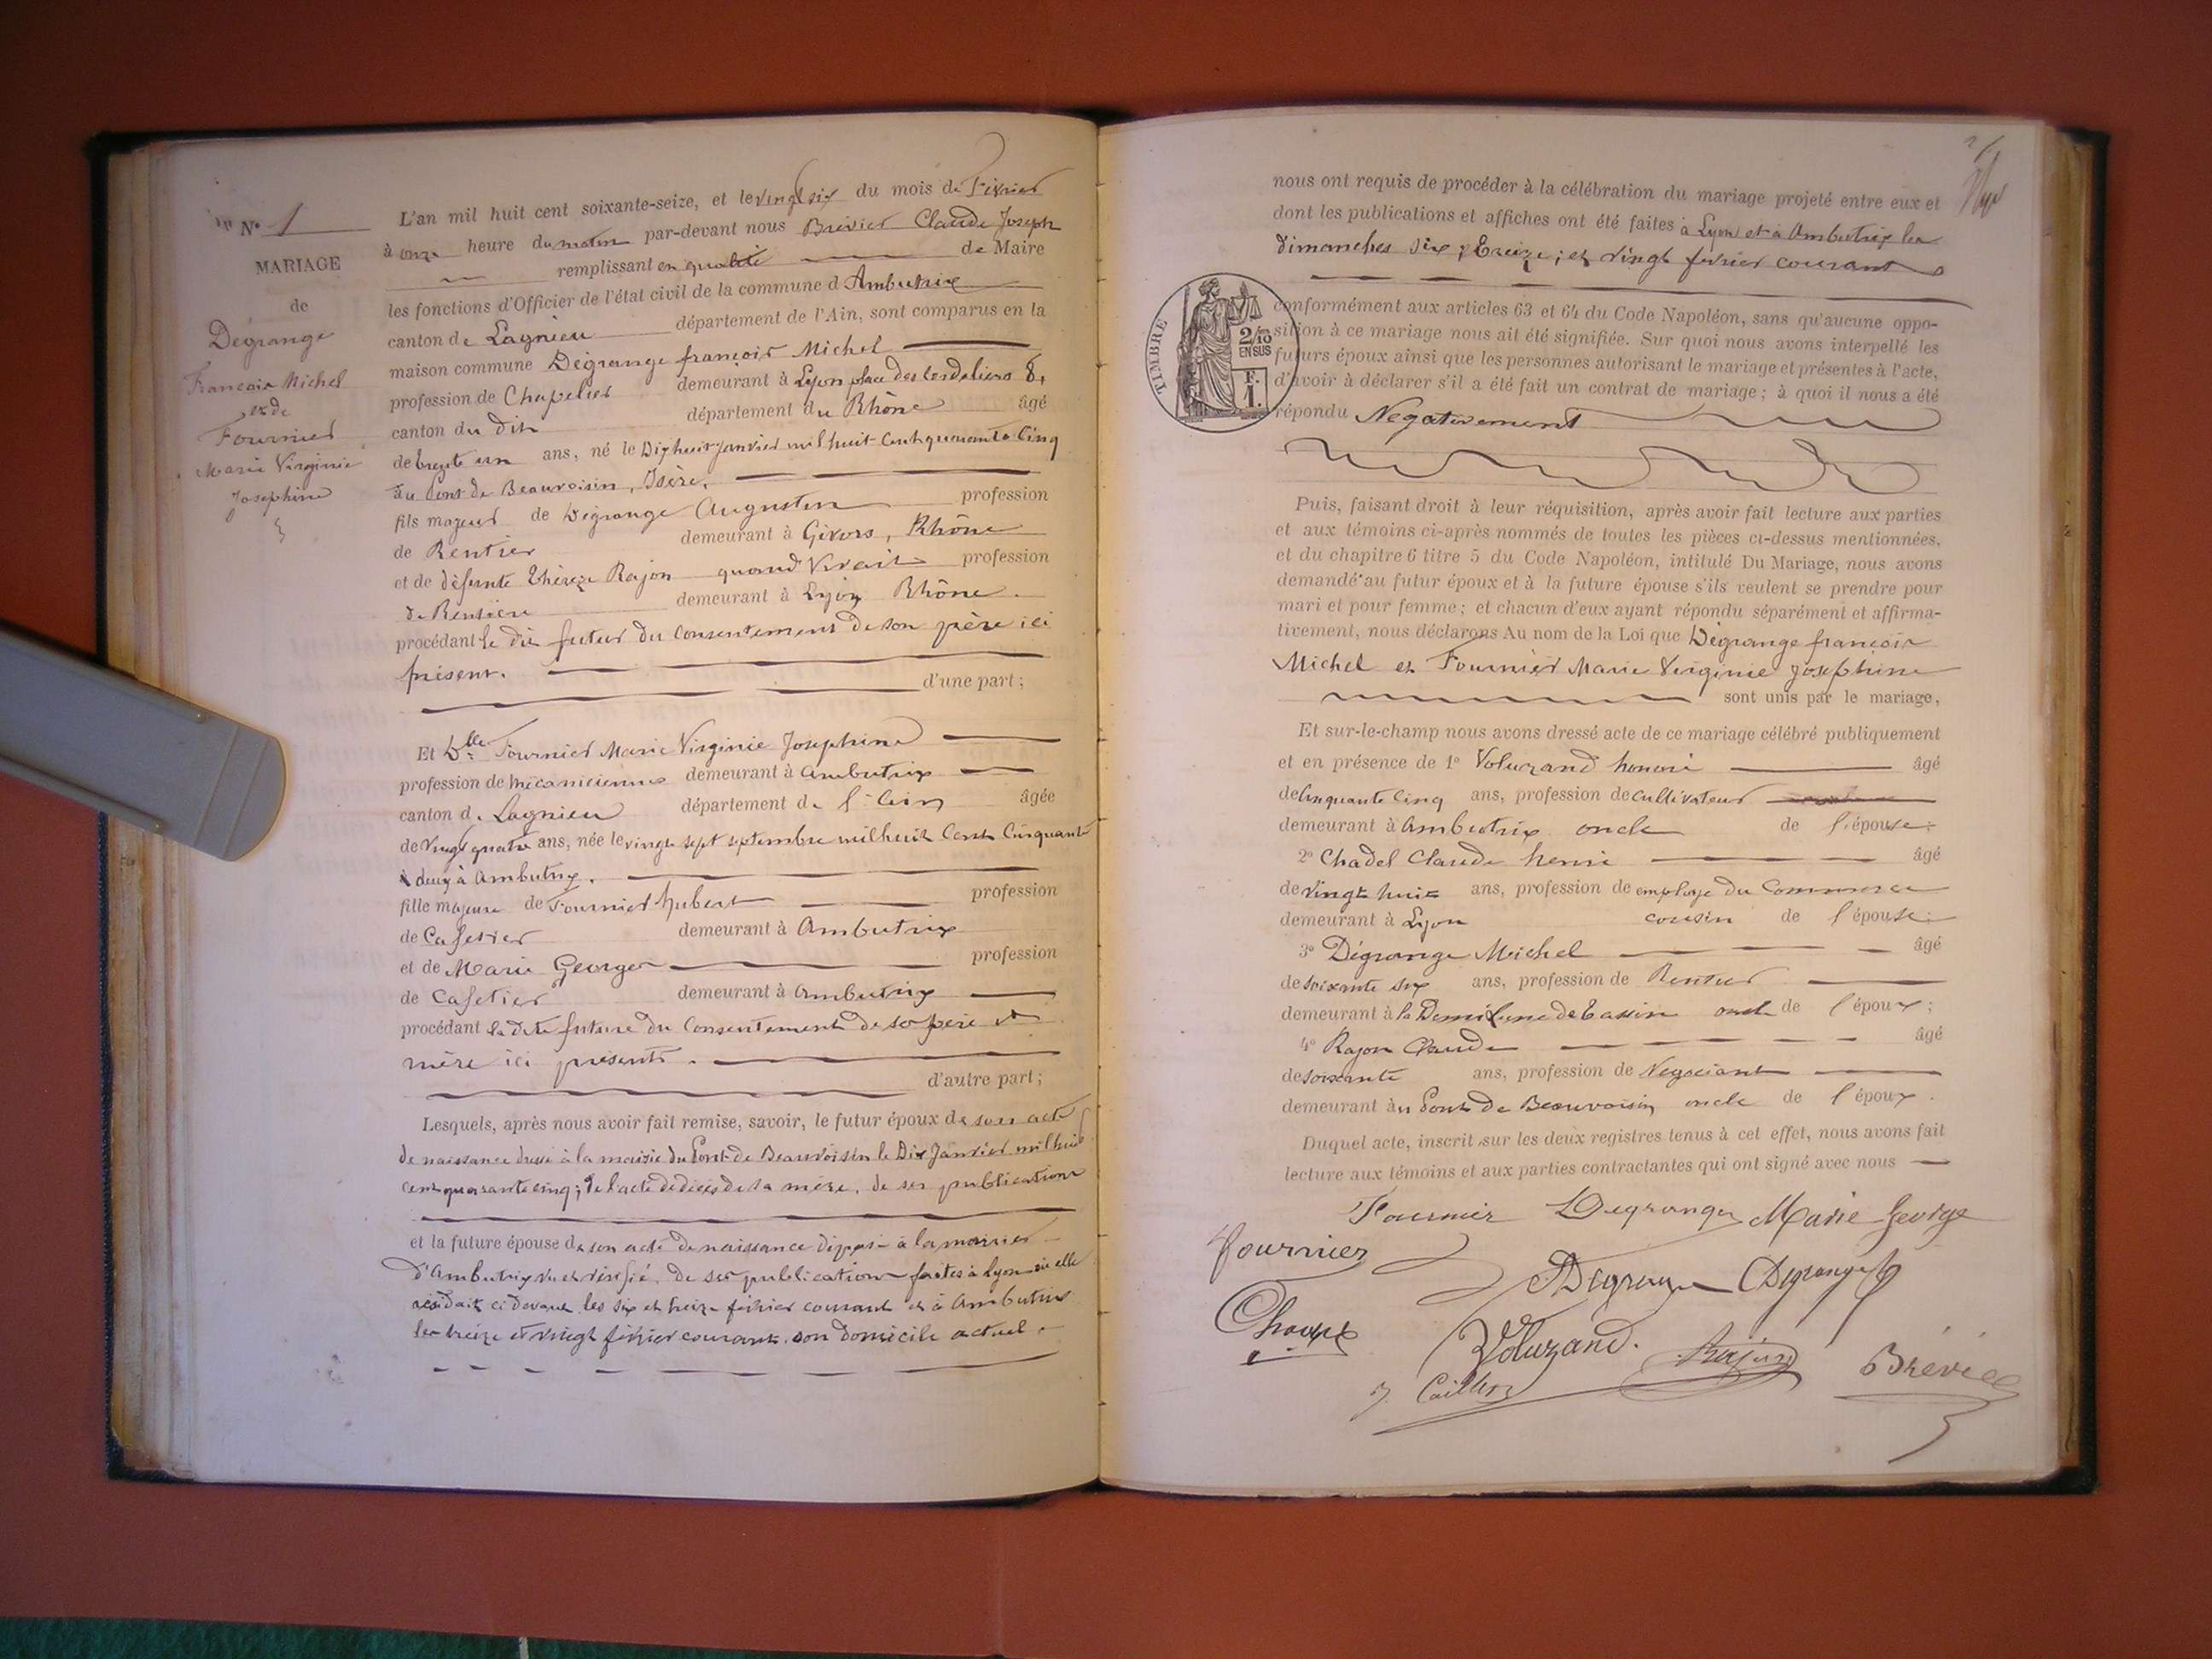 N° 1
MARIAGE
de
Dégrange
François Michel
et de
Fournier
Marie Virginie
Josephine
L'an mil huit cent soixante-seize, et le vingt six du mois de Février
à onze heure du matin par-devant nous Brévier Claude Joseph
remplissant en qualité de Maire
les fonctions d'Officier de l'état civil de la commune d'Ambutrix
canton de Lagnieu département de l'Ain, sont comparus en la
maison commune Dégrange françois Michel
profession de Chapelier demeurant à Lyon place des Cordeliers 8,
canton du dit département du Rhône âgé
de trente un ans, né le Dix huit Janvier mil huit Cent quarante Cinq
au Pont de Beauvoisin, Isère,
fils majeur de Dégrange Augustin profession
de Rentier demeurant à Givors, Rhône
et de défunte Thérèze Rajon quand Vivait profession
de Rentière demeurant à Lyon Rhône.
procédant le dit futur du Consentement de son père ici
présent.
d'une part;
Et Dlle Fournier Marie Virginie Josephine
profession de Mécanicienne demeurant à Ambutrix
canton de Lagnieu département de l'Ain âgée
de Vingt quatre ans, née le vingt sept septembre mil huit Cent Cinquante
deux à Ambutrix.
fille majeure de Fournier hubert profession
de Cafetier demeurant à Ambutrix
et de Marie George profession
de Cafetier demeurant à Ambutrix
procédant la dite future du Consentement de ses père et
mère ici présents.
d'autre part;
Lesquels, après nous avoir fait remise, savoir, le futur époux de son acte
de naissance dressé à la mairie du Pont de Beauvoisin le Dix Janvier mil huit
cent quarante cinq; de l'acte de décès de sa mère, de ses publications
et la future épouse de son acte de naissance déposé à la mairie
d'Ambutrix vu et vérifié, de ses publications faites à Lyon où elle
résidait ci devant les six et treize février courant et à Ambutrix
les treize et vingt février courant son domicile actuel.
nous ont requis de procéder à la célébration du mariage projeté entre eux et
dont les publications et affiches ont été faites à Lyon et à Ambutrix les
dimanches six; treize; et vingt février courant
TIMBRE
2/10
EN SUS
F.
1.
conformément aux articles 63 et 64 du Code Napoléon, sans qu'aucune oppo-
sition à ce mariage nous ait été signifiée. Sur quoi nous avons interpellé les
futurs époux ainsi que les personnes autorisant le mariage et présentes à l'acte,
d'avoir à déclarer s'il a été fait un contrat de mariage; à quoi il nous a été
répondu Négativement
Puis, faisant droit à leur réquisition, après avoir fait lecture aux parties
et aux témoins ci-après nommés de toutes les pièces ci-dessus mentionnées,
et du chapitre 6 titre 5 du Code Napoléon, intitulé Du Mariage, nous avons
demandé au futur époux et à la future épouse s'ils veulent se prendre pour
mari et pour femme; et chacun d'eux ayant répondu séparément et affirma-
tivement, nous déclarons Au nom de la Loi que Dégrange françois
Michel et Fournier Marie Virginie Josephine
sont unis par le mariage,
Et sur-le-champ nous avons dressé acte de ce mariage célébré publiquement
et en présence de 1° Voluzand honoré âgé
de Cinquante Cinq ans, profession de Cultivateur
demeurant à Ambutrix oncle de l'épouse;
2° Chadel Claude henri âgé
de Vingt huit ans, profession de employé du Commerce
demeurant à Lyon cousin de l'épouse;
3° Dégrange Michel âgé
de soixante six ans, profession de Rentier
demeurant à la Demi Lune de Tassin oncle de l'époux;
4° Rajon Claude âgé
de soixante ans, profession de Négociant
demeurant au Pont de Beauvoisin oncle de l'époux.
Duquel acte, inscrit sur les deux registres tenus à cet effet, nous avons fait
lecture aux témoins et aux parties contractantes qui ont signé avec nous
Fournier Degrange Marie George
fournier
Degrange Degrange
Voluzand.
Rajon
Brévier